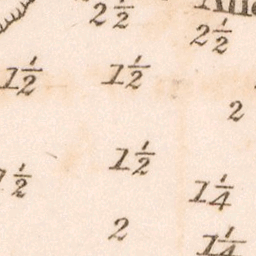 2½
2½
1½ 1½
2
1½
½
1¼
2
1¼